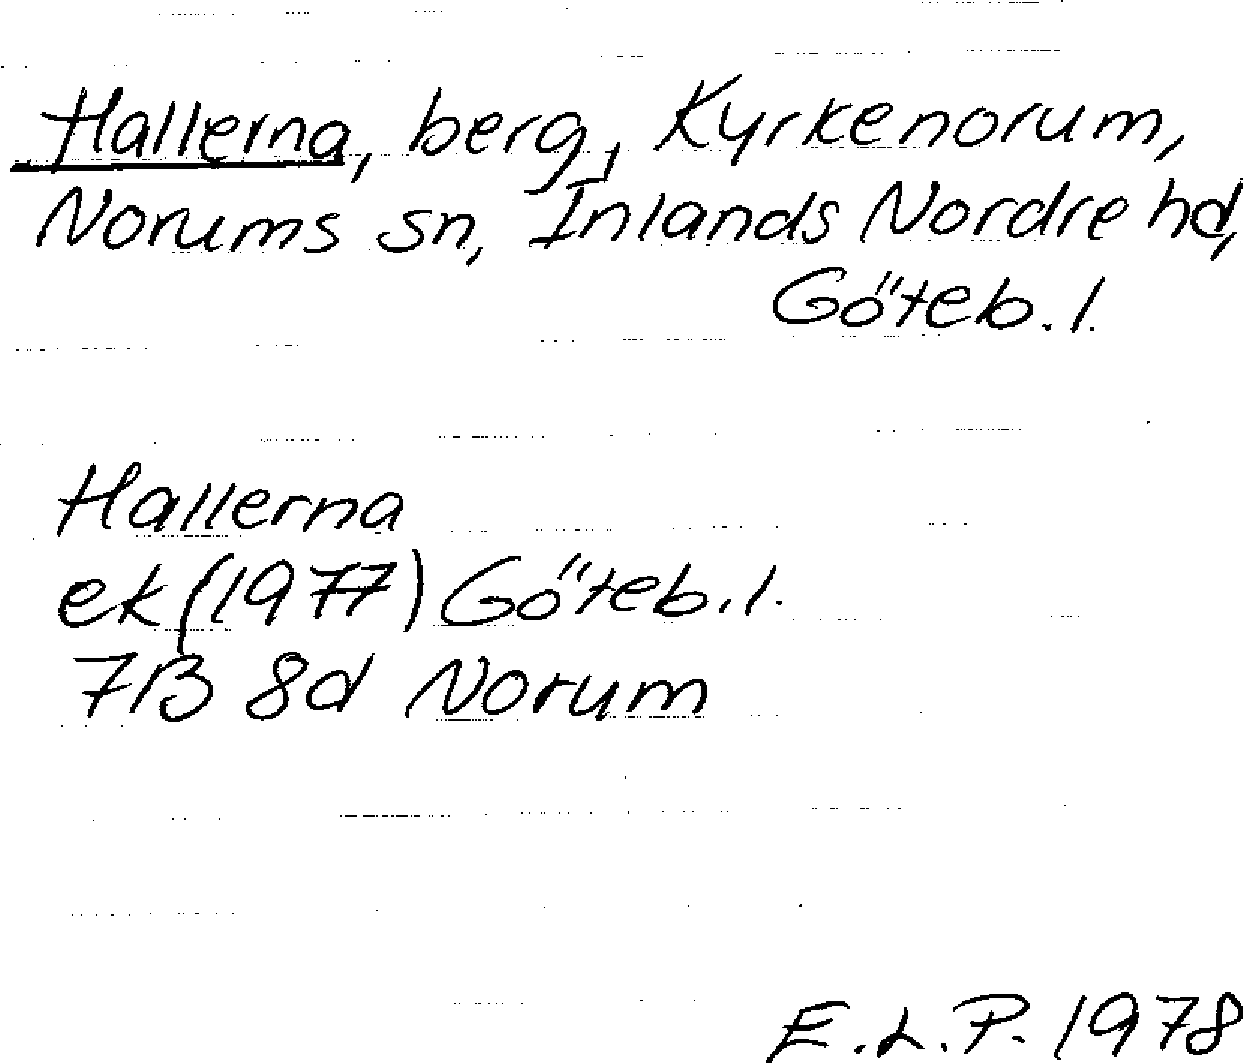 Hallerna, berg, Kyrkenorum,
Norums sn, Inlands Nordre hd,
Göteb. l.
Hallerna
ek (1977) Göteb. l.
7B 8d Norum
E. L. P. 1978